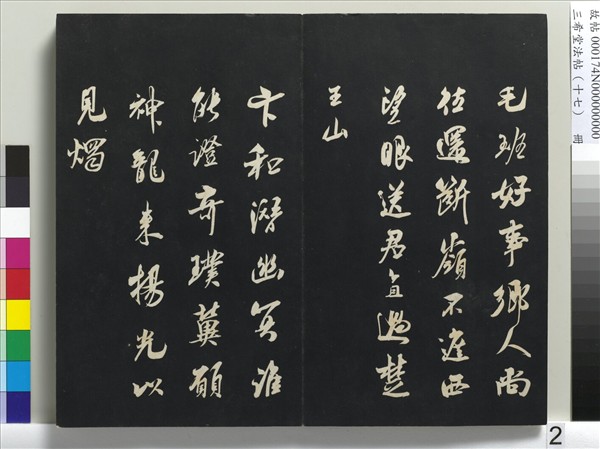 故帖 000174N000000000
三希堂法帖（十七） 冊
毛班好事鄉人尚
往還斷嶺不遮西
望眼送君直過楚
王山
卞和潛幽冥誰
能證奇璞冀願
神龍來揚光以
見燭
2